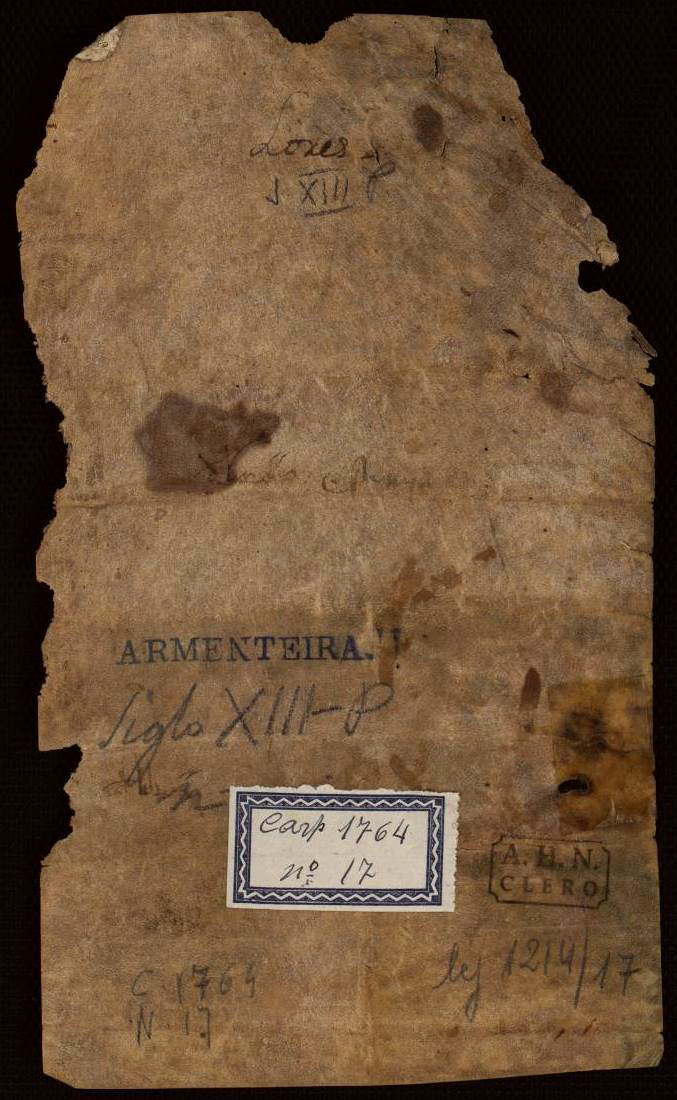 Lores
S XIII P
ARMENTEIRA.
Siglo XIII-P
Carp 1764
nº 17
A. H. N.
CLERO
C. 1764
N. 17
leg 1214/17